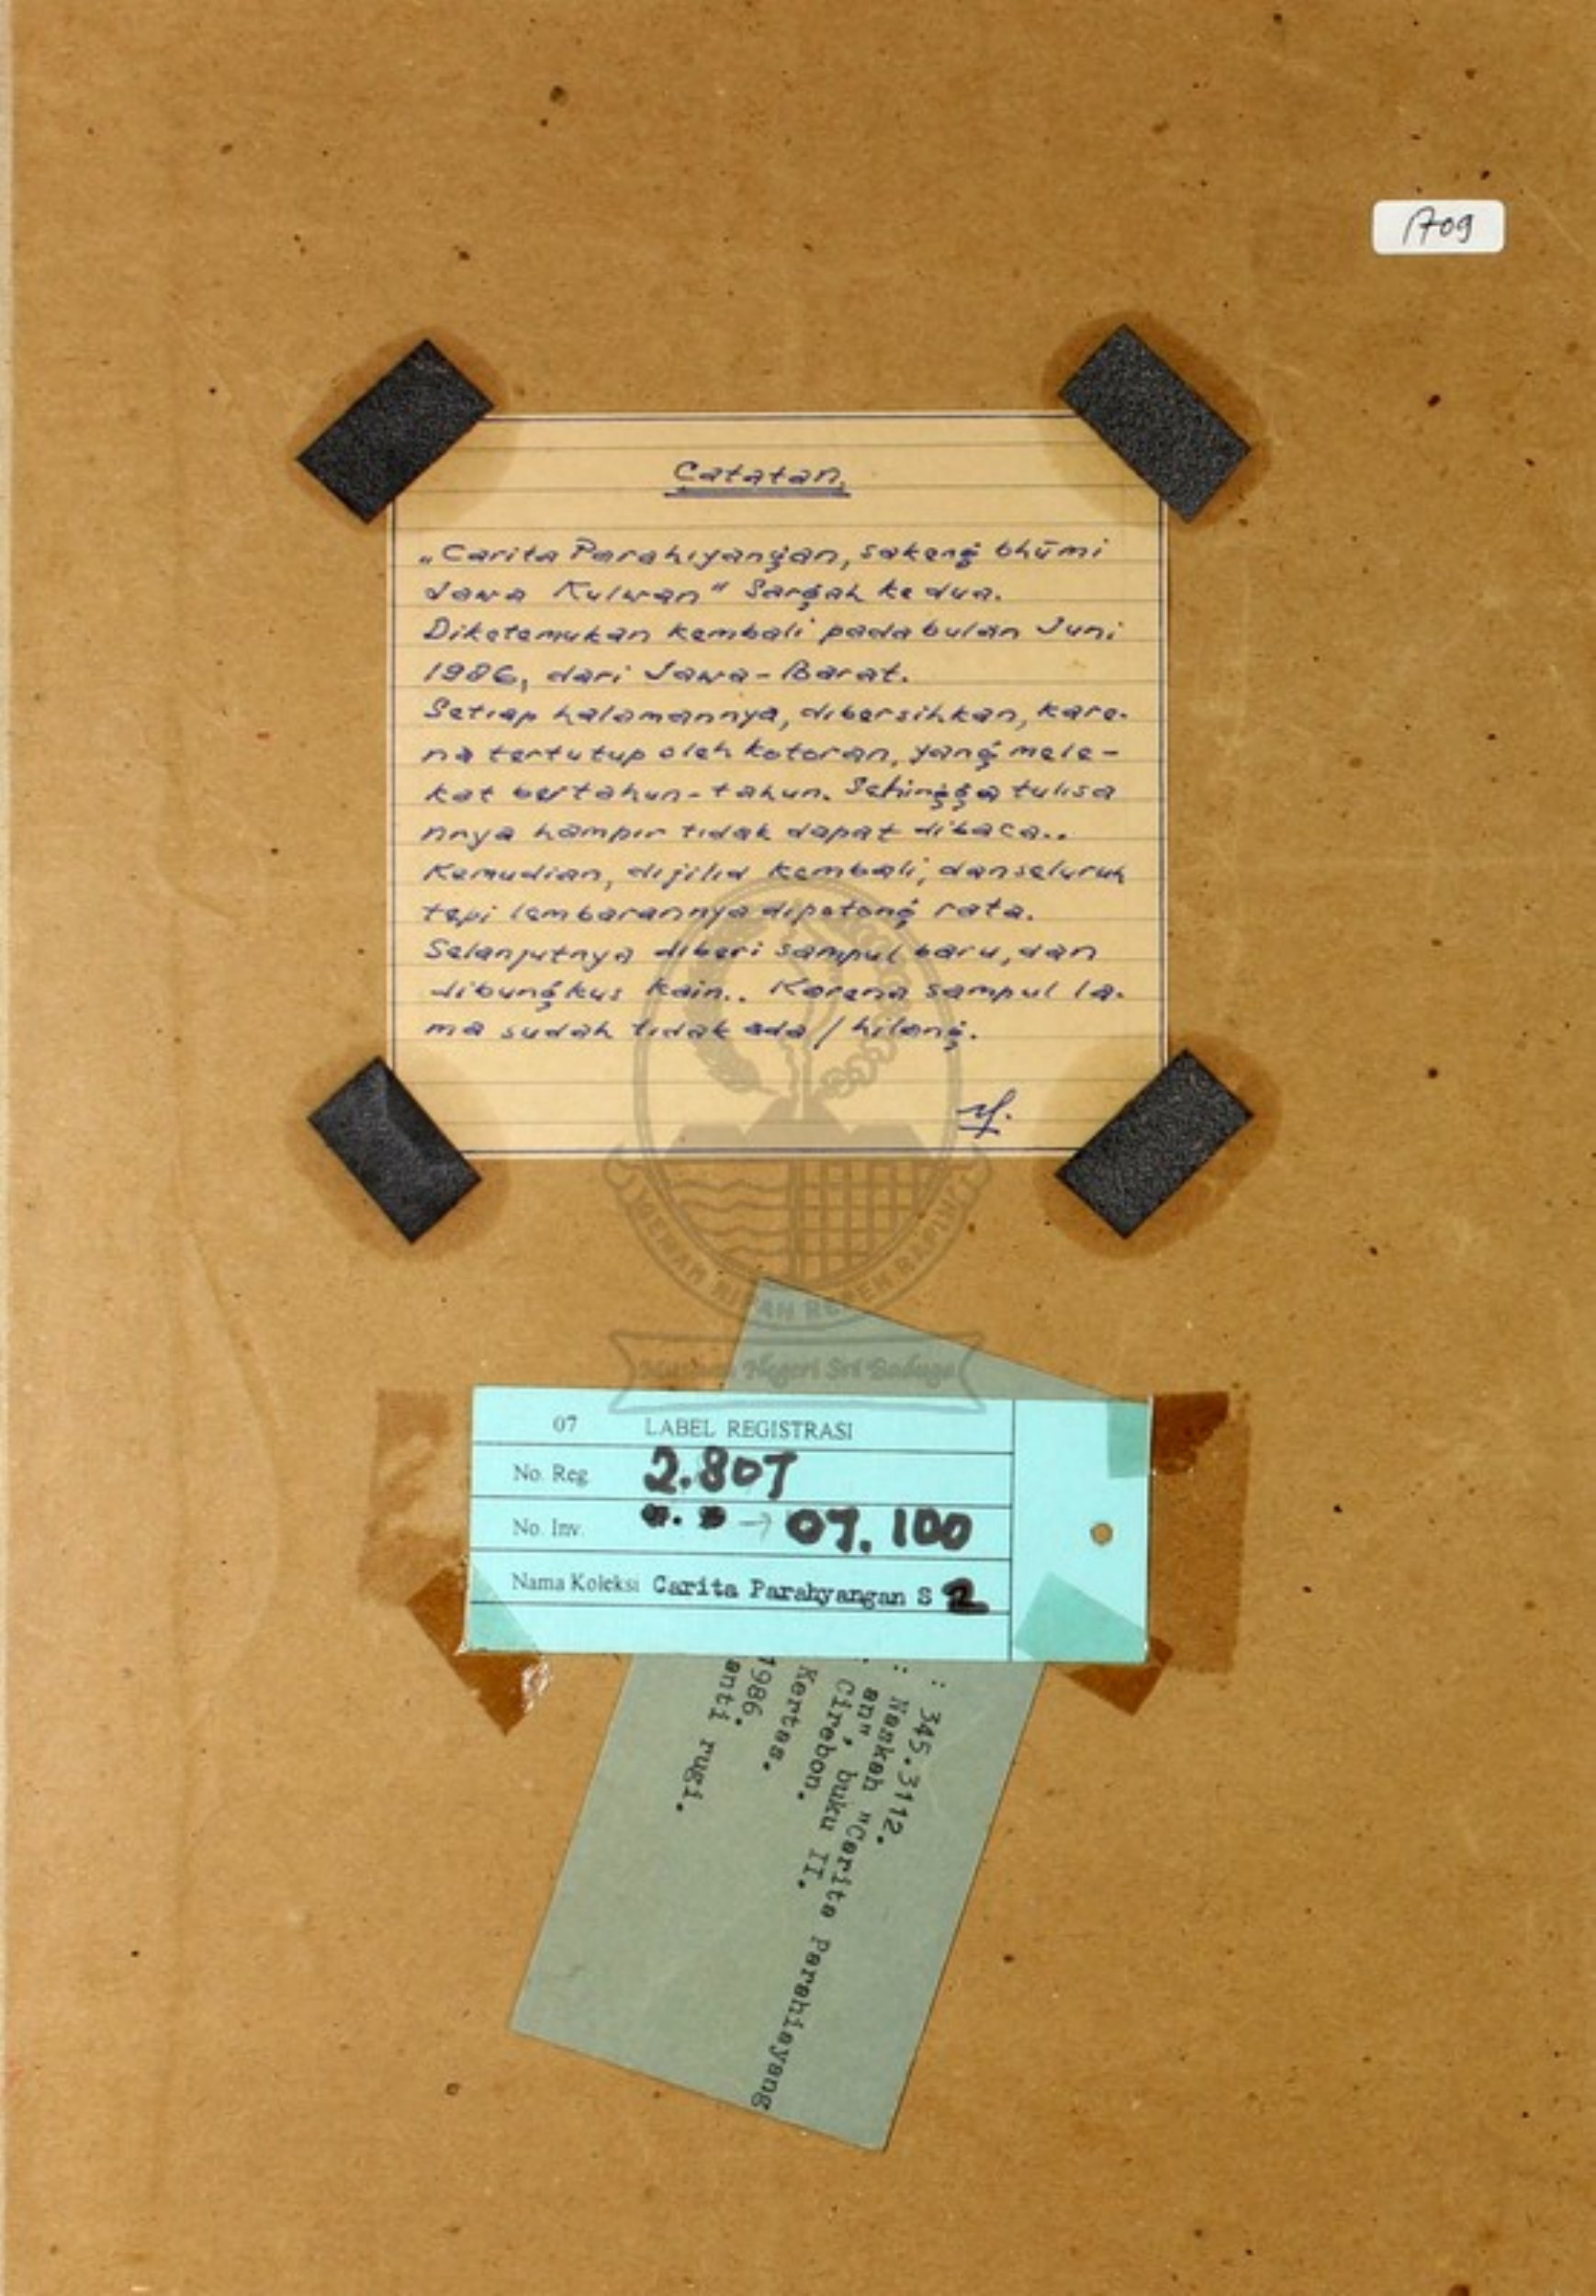 1709
Catatan.
„Carita Parahiyangan, sakeng bhūmi
Jawa Kulwan" Sargah kedua.
Diketemukan kembali pada bulan Juni
1986, dari Jawa-Barat.
Setiap halamannya, dibersihkan, kare-
na tertutup oleh kotoran, yang mele-
kat bertahun-tahun. Sehingga tulisa
nnya hampir tidak dapat dibaca..
Kemudian, dijilid kembali, dan seluruh
tepi lembarannya dipotong rata.
Selanjutnya diberi sampul baru, dan
dibungkus kain.. Karena sampul la-
ma sudah tidak ada / hilang.
GEMAH RIPAH REPEH RAPIH
Museum Negeri Sri Baduga
07 LABEL REGISTRASI
No. Reg. 2.807
No. Inv. → 07.100
Nama Koleksi Carita Parahyangan S 2
: 345.3112.
: Naskah "Carita Parahiayang
an", buku II.
: Cirebon.
Kertas.
1986.
anti rugi.